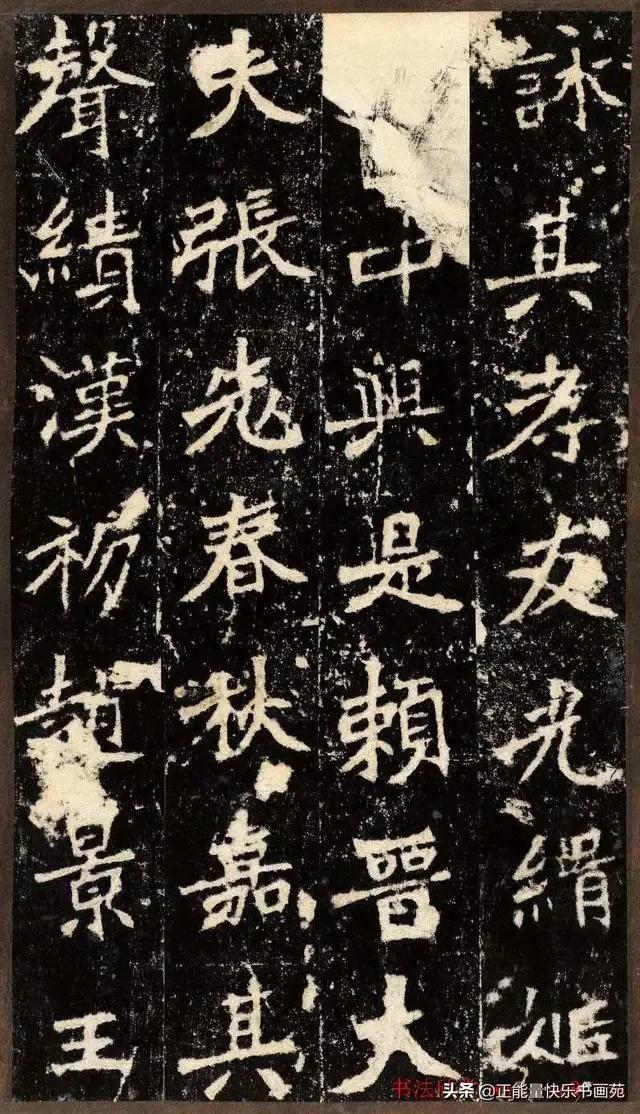 詠其孝友光緝姬
中興是賴晉大
夫張老春秋嘉其
聲績漢初趙景王
书法
头条 @正能量快乐书画苑